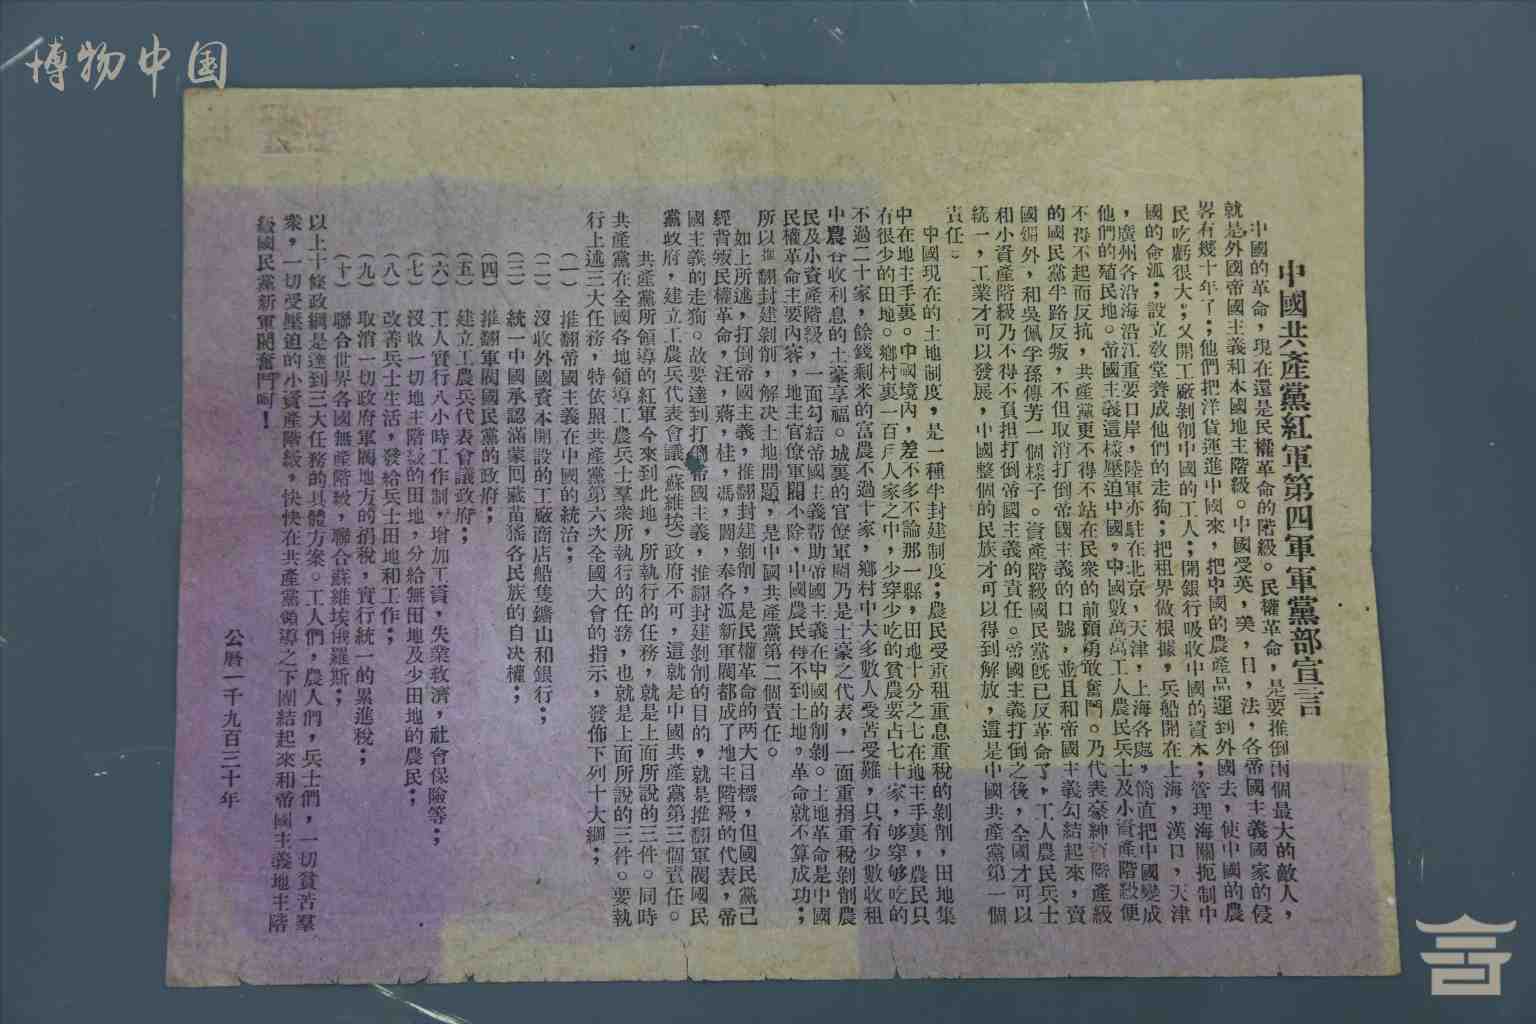 博物中国
中國共產黨紅軍第四軍軍黨部宣言
中國的革命，現在還是民權革命的階級。民權革命，是要推倒兩個最大的敵人，
就是外國帝國主義和本國地主階級。中國受英，美，日，法，各帝國主義國家的侵
畧有幾十年了；他們把洋貨運進中國來，把中國的農產品運到外國去，使中國的農
民吃虧很大；又開工廠剝削中國的工人；開銀行吸收中國的資本；管理海關扼制中
國的命派；設立敎堂養成他們的走狗；把租界做根據，兵船開在上海，漢口，天津
，廣州各沿海沿江重要口岸，陸軍亦駐在北京，天津，上海各處，簡直把中國變成
他們的殖民地。帝國主義這樣壓迫中國，中國數萬萬工人農民兵士及小資產階級便
不得不起而反抗，共產黨更不得不站在民衆的前頭勇敢奮鬥。乃代表豪紳資階產級
的國民黨半路反叛，不但取消打倒帝國主義的口號，並且和帝國主義勾結起來，賣
國媚外，和吳佩孚孫傳芳一個樣子。資產階級國民黨旣已反革命了，工人農民兵士
和小資產階級乃不得不負担打倒帝國主義的責任。帝國主義打倒之後，全國才可以
統一，工業才可以發展，中國整個的民族才可以得到解放，這是中國共產黨第一個
責任。
中國現在的土地制度，是一種半封建制度；農民受重租重息重稅的剝削，田地集
中在地主手裏。中國境內，差不多不論那一縣，田地十分之七在地主手裏，農民只
有很少的田地。鄉村裏一百戶人家之中，少穿少吃的貧農要占七十家，够穿够吃的
不過二十家，餘錢剩米的富農不過十家，鄉村中大多數人受苦受難，只有少數收租
中農谷收利息的土豪享福。城裏的官僚軍閥乃是土豪之代表，一面重捐重稅剝削農
民及小資產階級，一面勾結帝國主義帮助帝國主義在中國的削剝。土地革命是中國
民權革命主要內容，地主官僚軍閥不除，中國農民得不到土地，革命就不算成功；
所以推翻封建剝削，解决土地問題，是中國共產黨第二個責任。
如上所述，打倒帝國主義，推翻封建剝削，是民權革命的两大目標，但國民黨已
經背叛民權革命，汪，蔣，桂，馮，閻，奉各派新軍閥都成了地主階級的代表，帝
國主義的走狗。故要達到打倒帝國主義，推翻封建剝削的目的，就是推翻軍閥國民
黨政府，建立工農兵代表會議（蘇維埃）政府不可，這就是中國共產黨第三個責任。
共產黨所領導的紅軍今來到此地，所執行的任務，就是上面所說的三件。同時
共產黨在全國各地領導工農兵士羣衆所執行的任務，也就是上面所說的三件。要執
行上述三大任務，特依照共產黨第六次全國大會的指示，發佈下列十大綱；
（一）推翻帝國主義在中國的統治；
（二）沒收外國資本開設的工廠商店船隻鑛山和銀行；
（三）統一中國承認滿蒙回藏苗猺各民族的自决權；
（四）推翻軍閥國民黨的政府；
（五）建立工農兵代表會議政府；
（六）工人實行八小時工作制，增加工資，失業救濟，社會保險等；
（七）沒收一切地主階級的田地，分給無田地及少田地的農民；
（八）改善兵士生活，發給兵士田地和工作；
（九）取消一切政府軍閥地方的捐稅，實行統一的累進稅；
（十）聯合世界各國無產階級，聯合蘇維埃俄羅斯；
以上十條政綱是達到三大任務的具體方案。工人們，農人們，兵士們，一切貧苦羣
衆，一切受壓迫的小資產階級，快快在共產黨領導之下團結起來和帝國主義地主階
級國民黨新軍閥奮鬥呵！
公曆一千九百三十年